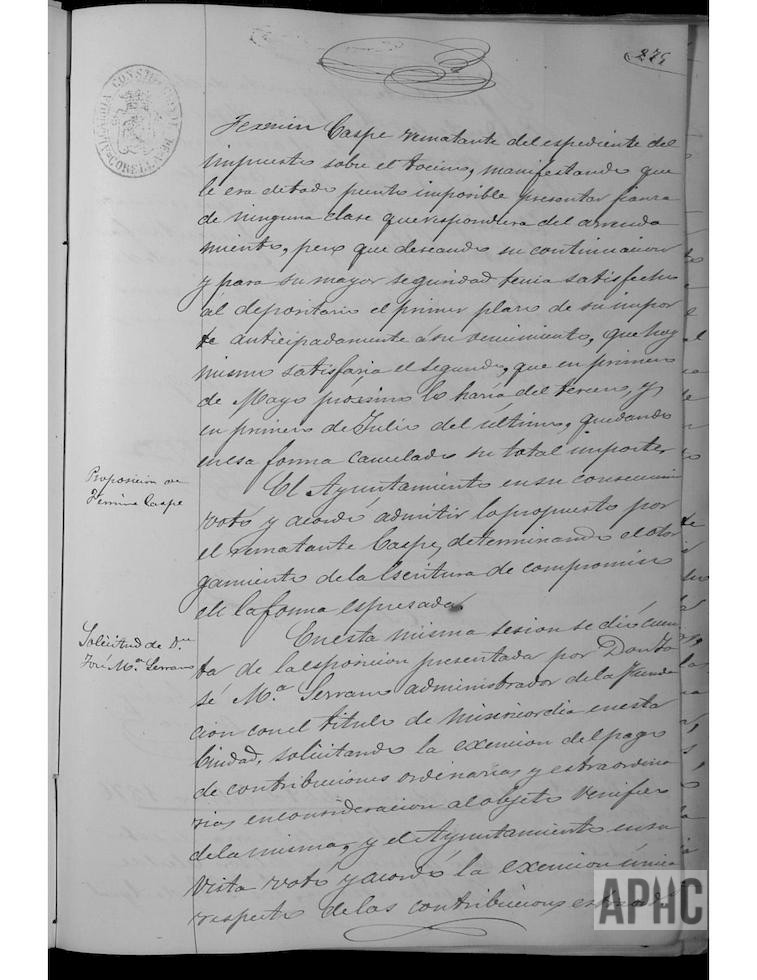 274
Fermin Caspe rematante del espediente del
impuesto sobre el tocino, manifestando que
le era de todo punto imposible presentar fianza
de ninguna clase que respondiera del arrenda
miento, pero que deseando su continuacion
y para su mayor seguridad tenia satisfecho
al depositario el primer plazo de su impor
te anticipadamente á su vencimiento, que hoy
mismo satisfaria el segundo, que en primero
de Mayo próximo lo haría del tercero, y
en primero de Julio del último, quedando
en esa forma cancelado su total importe
Proposicion de
Fermin Caspe
El Ayuntamiento en su consecuencia
votó y acordó admitir lo propuesto por
el rematante Caspe, determinando el otor
gamiento de la Escritura de compromiso
en la forma espresada.
Solicitud de Dn
José Mª Serrano
En esta misma sesion se dió cuen
ta de la esposicion presentada por Don Jo
sé Mª Serrano administrador de la Funda
cion con el titulo de Misericordia en esta
Ciudad, solicitando la exencion del pago
de contribuciones ordinarias y estraordina
rias en consideracion al objeto
de la misma, y el Ayuntamiento en su
vista votó y acordó la exencion única
respecto de las contribuciones
APHC